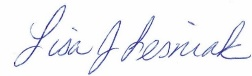 Lisa J Lesniak